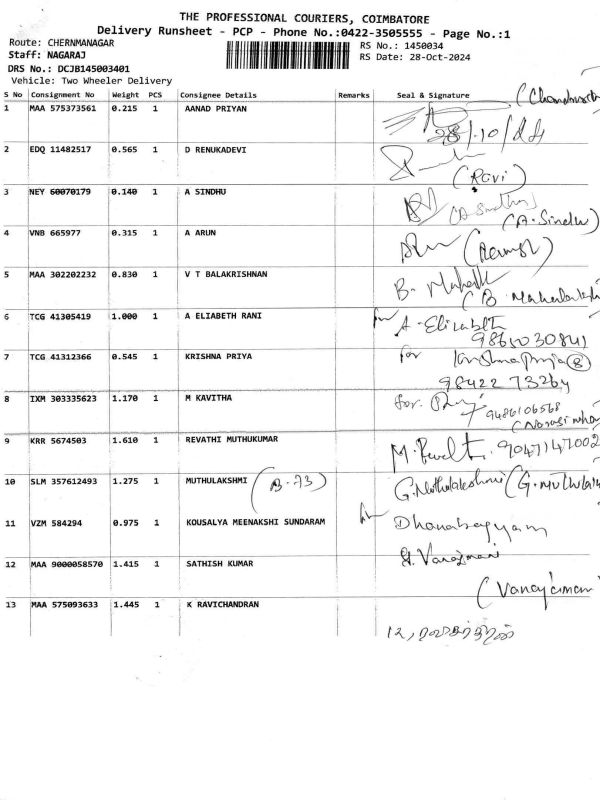 THE PROFESSIONAL COURIERS, COIMBATORE
Delivery Runsheet - PCP - Phone No.:0422-3505555 - Page No.:1
Route: CHERNMANAGAR
RS No.: 1450034
Staff: NAGARAJ
RS Date: 28-Oct-2024
DRS No.: DCJB145003401
Vehicle: Two Wheeler Delivery
S No Consignment No Weight PCS Consignee Details Remarks Seal & Signature
1 MAA 575373561 0.215 1 AANAD PRIYAN
28/10/24
2 EDQ 11482517 0.565 1 D RENUKADEVI
(Ravi)
3 NEY 60070179 0.140 1 A SINDHU (A.Sindhu)
(A.Sindhu)
4 VNB 665977 0.315 1 A ARUN
5 MAA 302202232 0.830 1 V T BALAKRISHNAN B.
(B.
6 TCG 41305419 1.000 1 A ELIABETH RANI for A. Elizabeth
9865030841
7 TCG 41312366 0.545 1 KRISHNA PRIYA for Krishna Priya (8)
98422 73264
8 IXM 303335623 1.170 1 M KAVITHA for. 9486106568
9 KRR 5674503 1.610 1 REVATHI MUTHUKUMAR 9047147002
10 SLM 357612493 1.275 1 MUTHULAKSHMI (B-73) G.Muthulakshmi (G.
11 VZM 584294 0.975 1 KOUSALYA MEENAKSHI SUNDARAM for Dhanabagyam
12 MAA 9000058570 1.415 1 SATHISH KUMAR
13 MAA 575093633 1.445 1 K RAVICHANDRAN